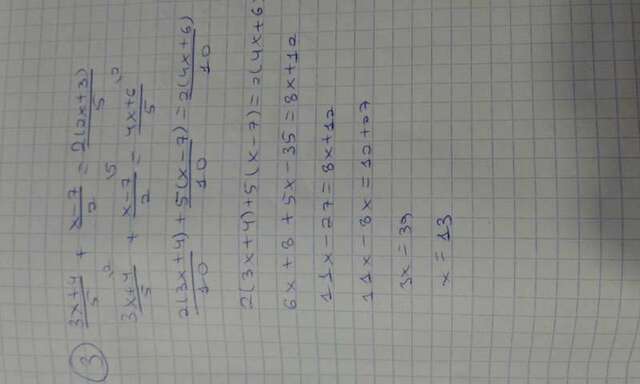 3 (3x+4)/5 + (x-7)/2 = 2(2x+3)/5
(3x+4)/5 ,2 + (x-7)/2 ,5 = (4x+6)/5 ,2
2(3x+4)/10 + 5(x-7)/10 = 2(4x+6)/10
2(3x+4)+5(x-7)=2(4x+6
6x+8+5x-35=8x+12
11x-27=8x+12
11x-8x=12+27
3x=39
x=13